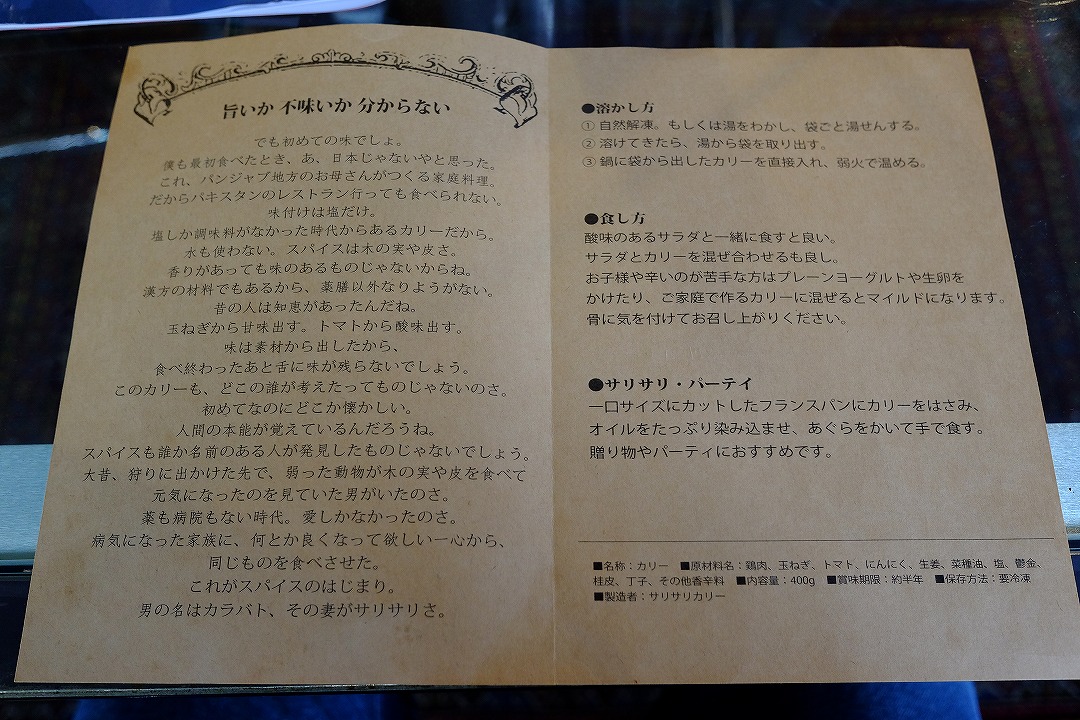 旨いか 不味いか 分からない
でも初めての味でしょ。
僕も最初食べたとき、あ、日本じゃないやと思った。
これ、パンジャブ地方のお母さんがつくる家庭料理。
だからパキスタンのレストラン行っても食べられない。
味付けは塩だけ。
塩しか調味料がなかった時代からあるカリーだから。
水も使わない。スパイスは木の実や皮さ。
香りがあっても味のあるものじゃないからね。
漢方の材料でもあるから、薬膳以外なりようがない。
昔の人は知恵があったんだね。
玉ねぎから甘味出す。トマトから酸味出す。
味は素材から出したから、
食べ終わったあと舌に味が残らないでしょう。
このカリーも、どこの誰が考えたってものじゃないのさ。
初めてなのにどこか懐かしい。
人間の本能が覚えているんだろうね。
スパイスも誰か名前のある人が発見したものじゃないでしょう。
大昔、狩りに出かけた先で、弱った動物が木の実や皮を食べて
元気になったのを見ていた男がいたのさ。
薬も病院もない時代。愛しかなかったのさ。
病気になった家族に、何とか良くなって欲しい一心から、
同じものを食べさせた。
これがスパイスのはじまり。
男の名はカラバト、その妻がサリサリさ。
●溶かし方
① 自然解凍。もしくは湯をわかし、袋ごと湯せんする。
② 溶けてきたら、湯から袋を取り出す。
③ 鍋に袋から出したカリーを直接入れ、弱火で温める。
●食し方
酸味のあるサラダと一緒に食すと良い。
サラダとカリーを混ぜ合わせるも良し。
お子様や辛いのが苦手な方はプレーンヨーグルトや生卵を
かけたり、ご家庭で作るカリーに混ぜるとマイルドになります。
骨に気を付けてお召し上がりください。
●サリサリ・パーテイ
一口サイズにカットしたフランスパンにカリーをはさみ、
オイルをたっぷり染み込ませ、あぐらをかいて手で食す。
贈り物やパーティにおすすめです。
■名称：カリー ■原材料名：鶏肉、玉ねぎ、トマト、にんにく、生姜、菜種油、塩、鬱金、
桂皮、丁子、その他香辛料 ■内容量：400g ■賞味期限：約半年 ■保存方法：要冷凍
■製造者：サリサリカリー